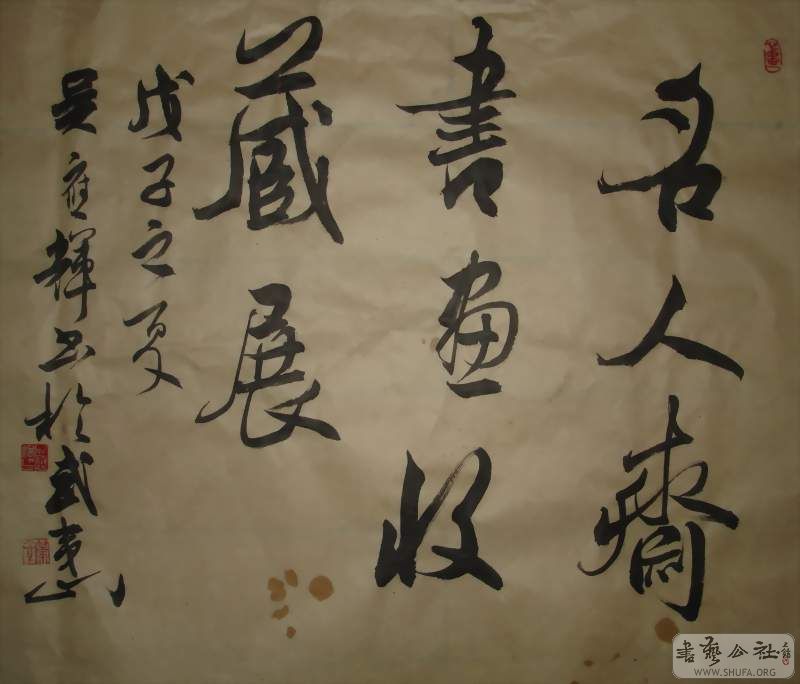 名人齋
書畫收
藏展
戊子之夏
吴應輝书於武夷山
書藝公社
WWW.SHUFA.ORG